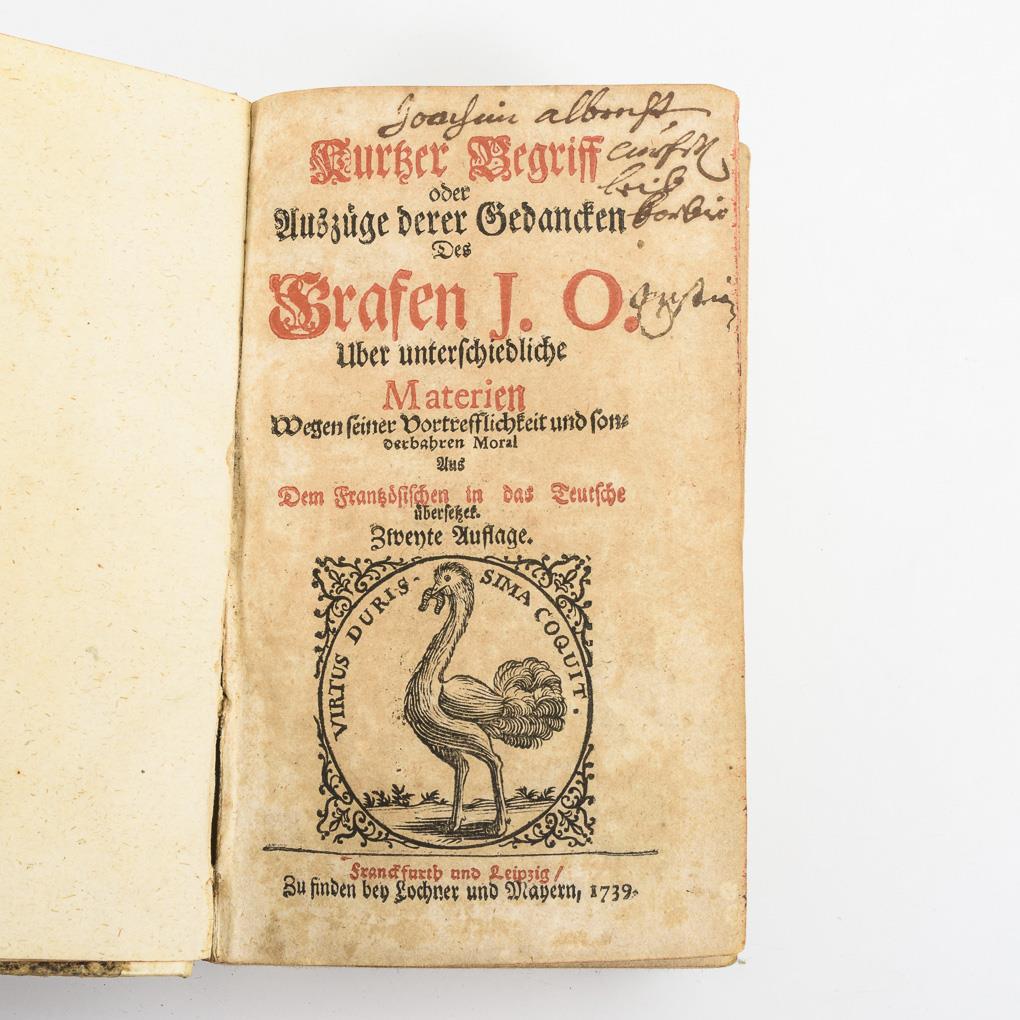 Joachim albrecht
Kurtzer Begriff
oder
Auszüge derer Gedancken
Des
Grafen J. O.
Uber unterschiedliche
Materien
Wegen seiner Vortrefflichkeit und son-
derbahren Moral
Aus
Dem Frantzösischen in das Teutsche
übersetzet.
Zweyte Auflage.
VIRTUS DURIS-SIMA COQUIT.
Franckfurth und Leipzig /
Zu finden bey Lochner und Mayern, 1739.